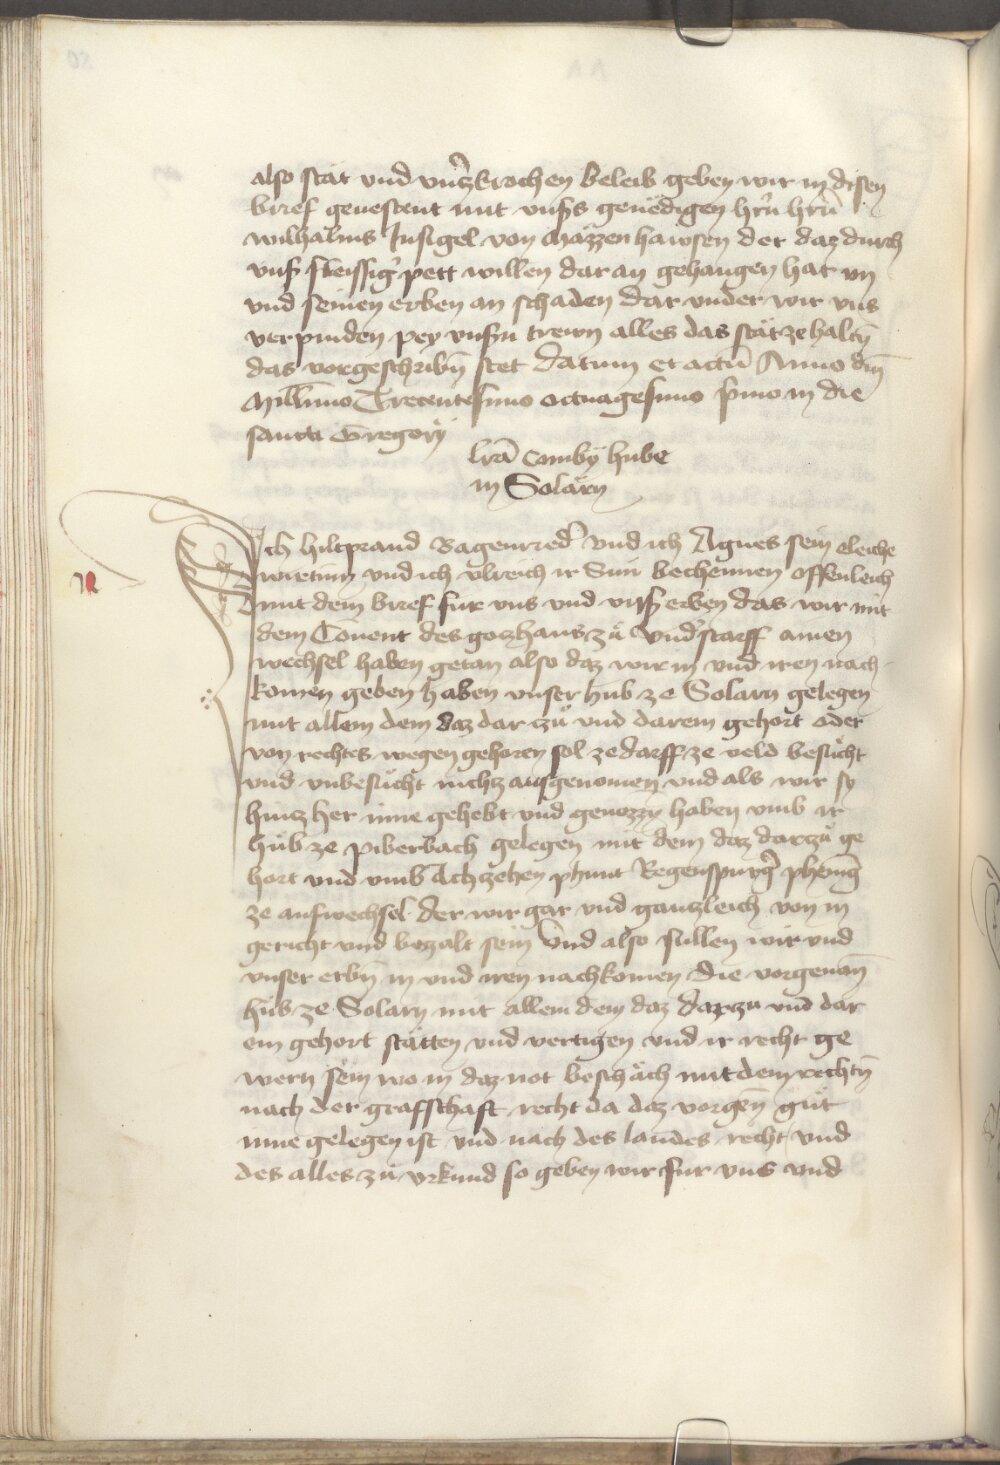 also stät vnd vnczbrochen beleib geben wir in disen
brief geuestent mit vnsers genedigen hrñ hrñ
wilhalms Insigel von Mäzzenhawsen der daz durch
vnser fleissiger pett willen dar an gehangen hat im
vnd seinen erben an schaden dar vnder wir vns
verpinden pey vnsern trewn alles das stät ze haltñ
das vorgeschribñ stet Datum et actũ Anno dñi
Millimo Trecentesimo octuagesimo primo in die
sancti Gregorÿ
lrã Combÿ hube
in Solärn
Ich hiltprand Ragenrieder vnd ich Agnes sein eleiche
wirtinn vnd ich vlreich ir Sun bechennen offenleich
mit dem brief für vns vnd vnser erben das wir mit
dem Conuent des goczhaus zů Vnderstarff ainen
wechsel haben getan also daz wir in vnd iren nach
komen geben haben vnser hub ze Solarn gelegen
mit allem dem daz dar zů vnd darein gehort oder
von rechtes wegen gehoren sol ze darff ze veld besůcht
vnd vnbesůcht nichz ausgenomen vnd als wir sy
hincz her inne gehebt vnd genozzn haben vmb ir
hůb ze piberbach gelegen mit dem daz darzů ge
hort vnd vmb Achzehen phunt Regenspurger phenig
ze aufwechsel der wir gar vnd ganczleich von in
gericht vnd bezalt sein Vnd also sullen wir vnd
vnser erbñ in vnd iren nachkomen die vorgenañ
hůb ze Solarn mit allem dem daz darzu vnd dar
ein gehort stätten vnd vertigen vnd ir recht ge
wern sein wo in daz not beschäch mit dem rechtñ
nach der grafschaft recht da daz vorgeñ gůt
inne gelegen ist vnd nach des landes recht vnd
des alles zů vrkund so geben wir fur vns vnd